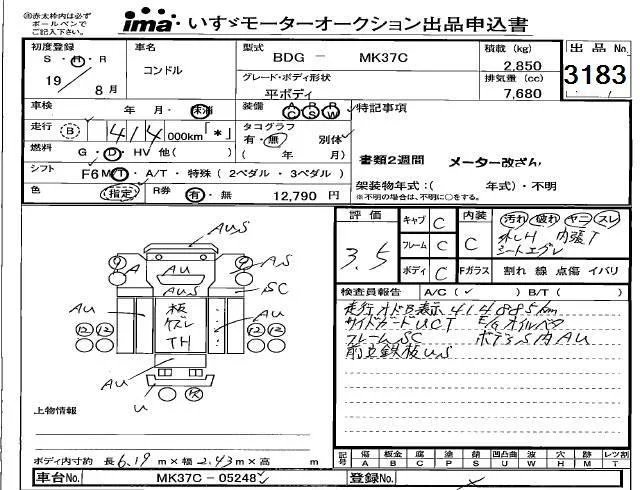 ㊟赤太枠内は必ず
ボールペンで
ご記入下さい。
ima いすゞモーターオークション出品申込書
初度登録
S・H・R
19
8月
車名
コンドル
型式
BDG － MK37C
グレード・ボディ形状
平ボディ
積載 (kg)
2,850
排気量 (cc)
7,680
出品 No.
3183
車検
年 月・未満
装備
AC PS RW
走行
B
414 000km「*」
タコグラフ
有・無 別体
( 年 月)
燃料
G・D・HV 他( )
シフト
F6 M/T・A/T・特殊(2ペダル・3ペダル)
色
(指定)
R券
有・無
12,790 円
特記事項
書類2週間 メーター改ざん
架装物年式:( 年式)・不明
※不明の場合は、不明に○をする。
評価
3.5
キャブ C
フレーム C
ボディ C
内装
C
汚れ 破れ ヤニ スレ
内張T
シートエグレ
Fガラス
割れ 線 点傷 イバリ
検査員報告 A/C(✓) B/T( )
走行オドB表示414885km
サイドガードUCT E/Gオイルベタ
フレームSC ボデーS内AU
前立鉄板US
AUS
A
AU
AS
AUS
SC
AU
板
ズレ
TH
AU
12 12
12 12
AU
U
上物情報
ボディ内寸約 長6.19m×幅2.43m×高 m
記号
傷 A
板金 B
腐 C
塗 P
錆 S
凹 U
波 W
穴 H
跡 M
レツ T
車台No. MK37C－05248
登録No.